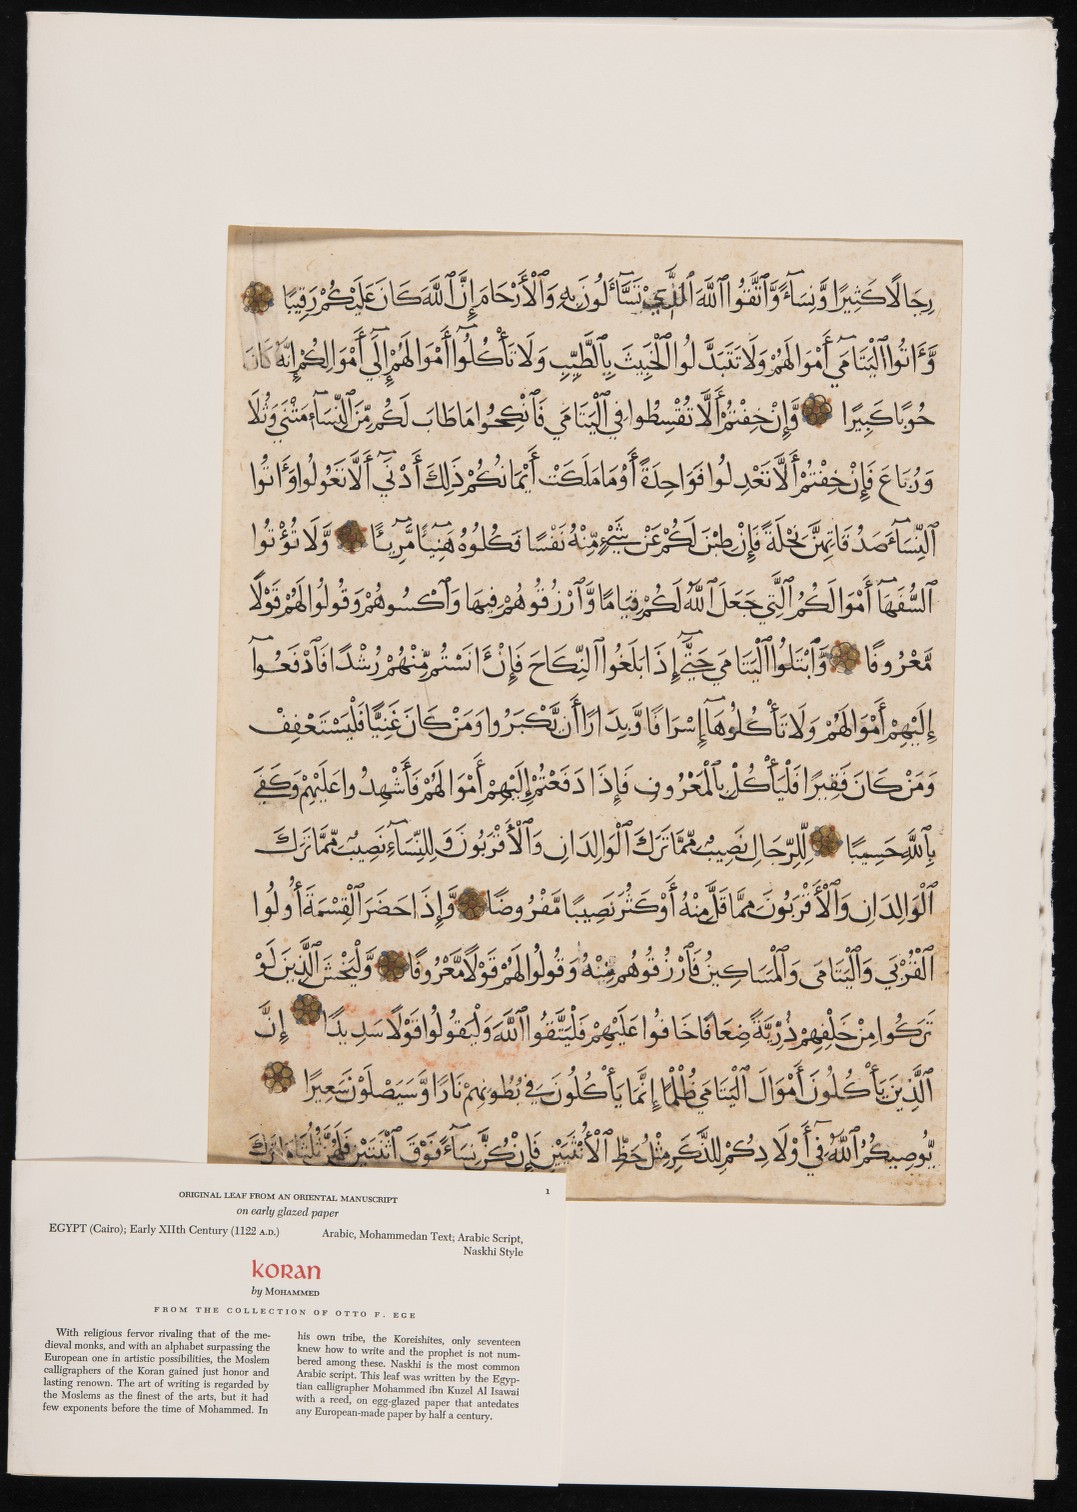 رِجَالًا كَثِيرًا وَّنِسَآءً وَّٱتَّقُوا ٱللَّهَ ٱلَّذِي تَسَّآءَلُونَ بِهِ وَٱلْأَرْحَامَ إِنَّ ٱللَّهَ كَانَ عَلَيْكُمْ رَقِيبًا
وَءَاتُوا ٱلْيَتَامَي أَمْوَالَهُمْ وَلَا تَتَبَدَّلُوا ٱلْخَبِيثَ بِٱلطَّيِّبِ وَلَا تَأْكُلُوٓا أَمْوَالَهُمْ إِلَيٓ أَمْوَالِكُمْ إِنَّهُ كَانَ
حُوبًا كَبِيرًا وَّإِنْ خِفْتُمْ أَلَّا تُقْسِطُوا فِي ٱلْيَتَامَي فَٱنْكِحُوا مَا طَابَ لَكُم مِّنَ ٱلنِّسَآءِ مَثْنَي وَثُلَا
وَرُبَاعَ فَإِنْ خِفْتُمْ أَلَّا تَعْدِلُوا فَوَاحِدَةً أَوْ مَا مَلَكَتْ أَيْمَانُكُمْ ذَلِكَ أَدْنَيٓ أَلَّا تَعُولُوا وَءَاتُوا
ٱلنِّسَآءَ صَدُقَاتِهِنَّ نِحْلَةً فَإِنْ طِبْنَ لَكُمْ عَنْ شَيْءٍ مِّنْهُ نَفْسًا فَكُلُوهُ هَنِيٓـًٔا مَّرِيٓـًٔا وَّلَا تُؤْتُوا
ٱلسُّفَهَآءَ أَمْوَالَكُمُ ٱلَّتِي جَعَلَ ٱللَّهُ لَكُمْ قِيَامًا وَّٱرْزُقُوهُمْ فِيهَا وَٱكْسُوهُمْ وَقُولُوا لَهُمْ قَوْلًا
مَّعْرُوفًا وَّٱبْتَلُوا ٱلْيَتَامَي حَتَّيٓ إِذَا بَلَغُوا ٱلنِّكَاحَ فَإِنْ ءَانَسْتُم مِّنْهُمْ رُشْدًا فَٱدْفَعُوٓا
إِلَيْهِمْ أَمْوَالَهُمْ وَلَا تَأْكُلُوهَآ إِسْرَافًا وَّبِدَارًا أَن يَّكْبَرُوا وَمَنْ كَانَ غَنِيًّا فَلْيَسْتَعْفِفْ
وَمَنْ كَانَ فَقِيرًا فَلْيَأْكُلْ بِٱلْمَعْرُوفِ فَإِذَا دَفَعْتُمْ إِلَيْهِمْ أَمْوَالَهُمْ فَأَشْهِدُوا عَلَيْهِمْ وَكَفَي
بِٱللَّهِ حَسِيبًا لِّلرِّجَالِ نَصِيبٌ مِّمَّا تَرَكَ ٱلْوَالِدَانِ وَٱلْأَقْرَبُونَ وَلِلنِّسَآءِ نَصِيبٌ مِّمَّا تَرَكَ
ٱلْوَالِدَانِ وَٱلْأَقْرَبُونَ مِمَّا قَلَّ مِنْهُ أَوْ كَثُرَ نَصِيبًا مَّفْرُوضًا وَّإِذَا حَضَرَ ٱلْقِسْمَةَ أُولُوا
ٱلْقُرْبَي وَٱلْيَتَامَي وَٱلْمَسَاكِينُ فَٱرْزُقُوهُم مِّنْهُ وَقُولُوا لَهُمْ قَوْلًا مَّعْرُوفًا وَّلْيَخْشَ ٱلَّذِينَ لَوْ
تَرَكُوا مِنْ خَلْفِهِمْ ذُرِّيَّةً ضِعَافًا خَافُوا عَلَيْهِمْ فَلْيَتَّقُوا ٱللَّهَ وَلْيَقُولُوا قَوْلًا سَدِيدًا إِنَّ
ٱلَّذِينَ يَأْكُلُونَ أَمْوَالَ ٱلْيَتَامَي ظُلْمًا إِنَّمَا يَأْكُلُونَ فِي بُطُونِهِمْ نَارًا وَّسَيَصْلَوْنَ سَعِيرًا
يُّوصِيكُمُ ٱللَّهُ فِيٓ أَوْلَادِكُمْ لِلذَّكَرِ مِثْلُ حَظِّ ٱلْأُنْثَيَيْنِ فَإِنْ كُنَّ نِسَآءً فَوْقَ ٱثْنَتَيْنِ فَلَهُنَّ ثُلُثَا مَا تَرَكَ
1
ORIGINAL LEAF FROM AN ORIENTAL MANUSCRIPT
on early glazed paper
EGYPT (Cairo); Early XIIth Century (1122 A.D.)
Arabic, Mohammedan Text; Arabic Script,
Naskhi Style
KORAN
by MOHAMMED
FROM THE COLLECTION OF OTTO F. EGE
With religious fervor rivaling that of the me-
dieval monks, and with an alphabet surpassing the
European one in artistic possibilities, the Moslem
calligraphers of the Koran gained just honor and
lasting renown. The art of writing is regarded by
the Moslems as the finest of the arts, but it had
few exponents before the time of Mohammed. In
his own tribe, the Koreishites, only seventeen
knew how to write and the prophet is not num-
bered among these. Naskhi is the most common
Arabic script. This leaf was written by the Egyp-
tian calligrapher Mohammed ibn Kuzel Al Isawai
with a reed, on egg-glazed paper that antedates
any European-made paper by half a century.